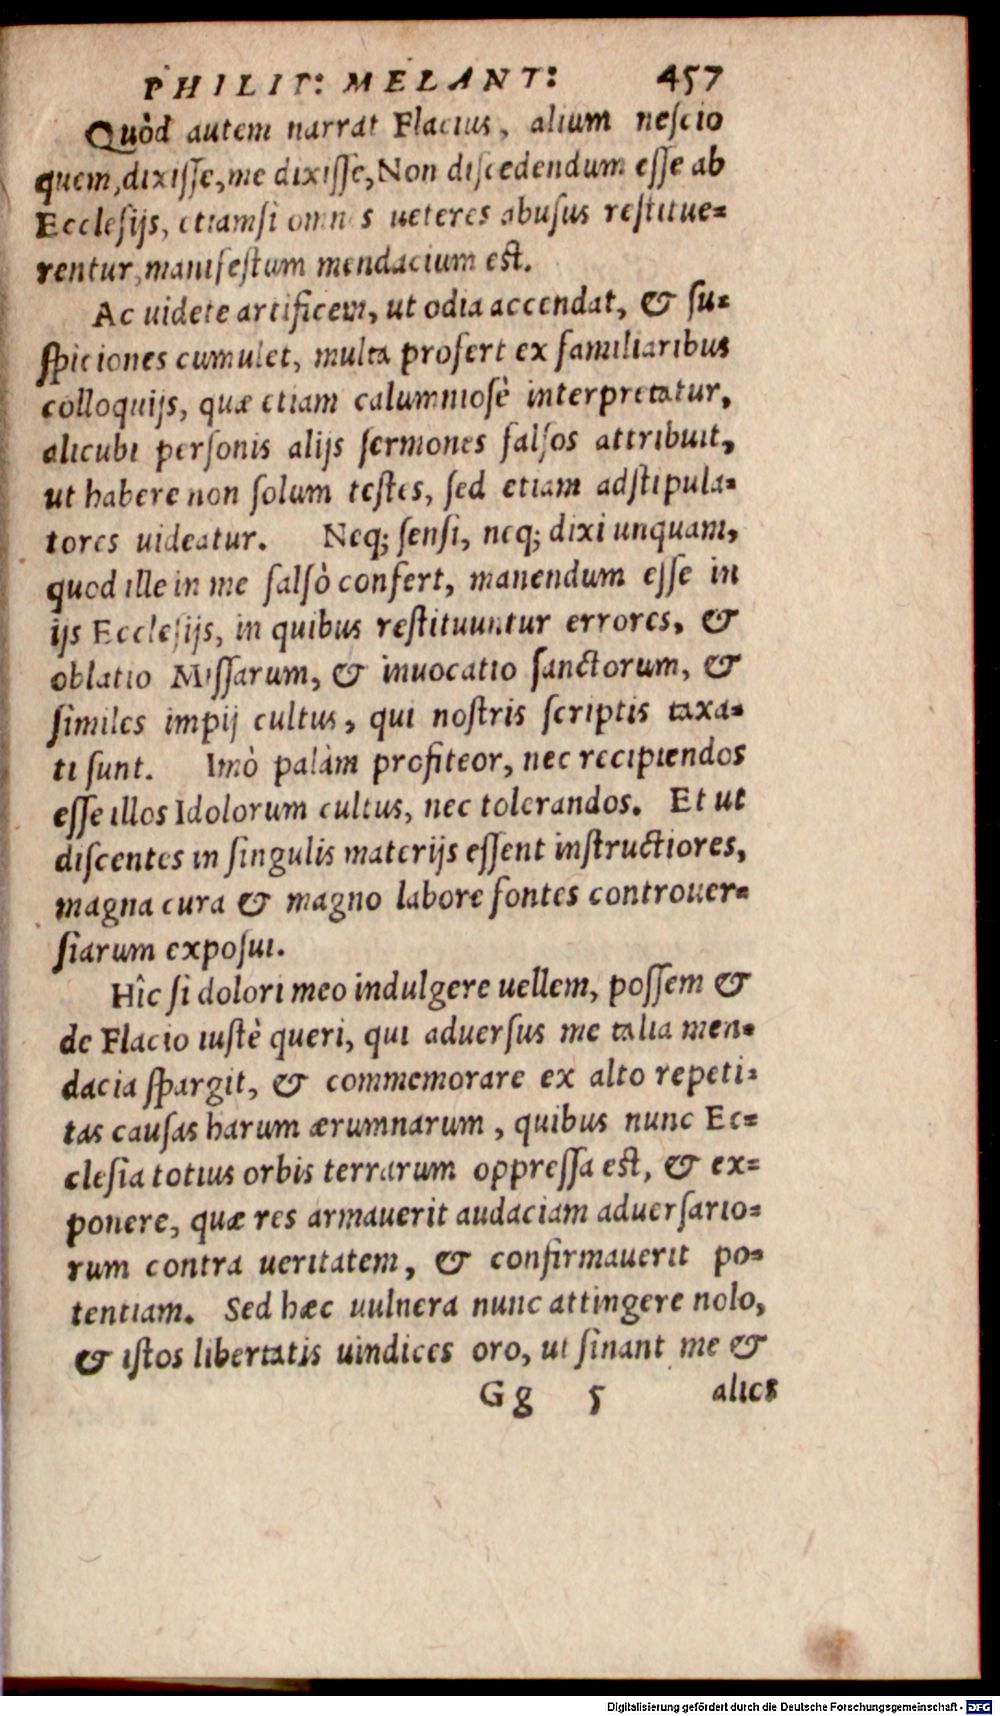 PHILIP: MELANT: 457
Quòd autem narrat Flacius, alium nescio
quem, dixisse, me dixisse, Non discedendum esse ab
Ecclesijs, etiamsi omnes ueteres abusus restitue=
rentur, manifestum mendacium est.
Ac uidete artificem, ut odia accendat, & su=
spiciones cumulet, multa profert ex familiaribus
colloquijs, quæ etiam calumniosè interpretatur,
alicubi personis alijs sermones falsos attribuit,
ut habere non solum testes, sed etiam adstipula=
tores uideatur. Neq; sensi, neq; dixi unquam,
quod ille in me falsò confert, manendum esse in
ijs Ecclesijs, in quibus restituuntur errores, &
oblatio Missarum, & inuocatio sanctorum, &
similes impij cultus, qui nostris scriptis taxa=
ti sunt. Imò palàm profiteor, nec recipiendos
esse illos Idolorum cultus, nec tolerandos. Et ut
discentes in singulis materijs essent instructiores,
magna cura & magno labore fontes controuer=
siarum exposui.
Hîc si dolori meo indulgere uellem, possem &
de Flacio iustè queri, qui aduersus me talia men=
dacia spargit, & commemorare ex alto repeti=
tas causas harum ærumnarum, quibus nunc Ec=
clesia totius orbis terrarum oppressa est, & ex=
ponere, quæ res armauerit audaciam aduersario=
rum contra ueritatem, & confirmauerit po=
tentiam. Sed hæc uulnera nunc attingere nolo,
& istos libertatis uindices oro, ut sinant me &
Gg 5 alios
Digitalisierung gefördert durch die Deutsche Forschungsgemeinschaft - DFG